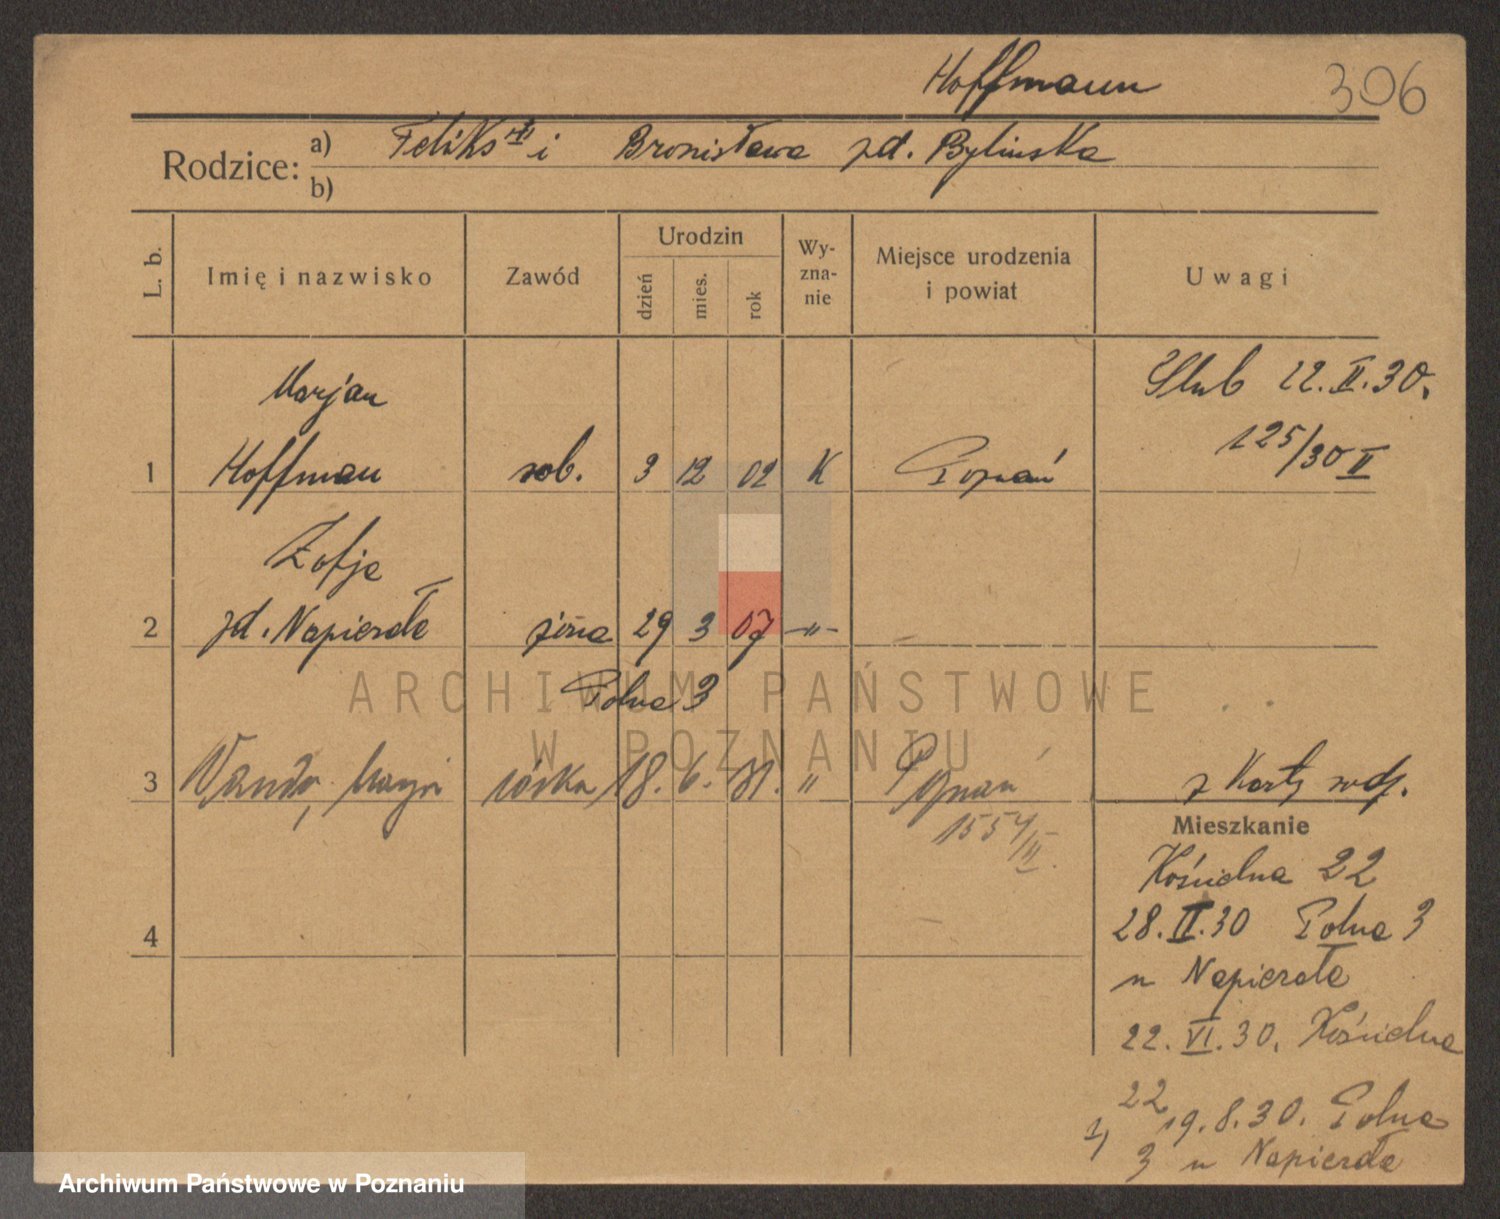 Hoffmann
306
Rodzice: a) Feliks i Bronisława zd. Bylinska
b)
L. b. Imię i nazwisko Zawód Urodzin dzień mies. rok Wy-zna-nie Miejsce urodzenia i powiat Uwagi
Marjan
Slub 22.II.30.
125/30 II
1 Hoffman rob. 3 12 02 K Poznań
Zofja
2 zd. Napierała żona 29 3 07 -"-
Polna 3
3 Wanda, córka 18. 6. 31. " Poznań
z Karty rodz.
1554/II
Mieszkanie
Kościelna 22
28.II.30 Polna 3
4
u Napierała
22.VI.30. Kościelna
22
1) 19.8.30. Polna
3 u Napierała
ARCHIWUM PAŃSTWOWE
W POZNANIU
Archiwum Państwowe w Poznaniu